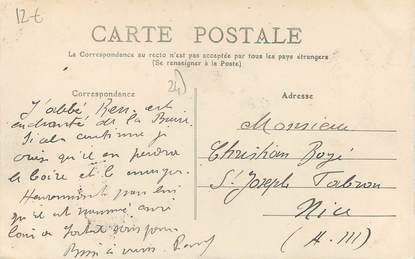 12€
CARTE POSTALE
La Correspondance au recto n'est pas acceptée par tous les pays étrangers
(Se renseigner à la Poste)
Correspondance
Adresse
L'abbé est
enchanté de la
Si cela continue je
crois qu'il en perdra
le boire et le manger.
Heureusement pour lui
qu'il est nommé
loin de
Bien à vous
Monsieur
Christian
St Joseph
Nice
(A. M)